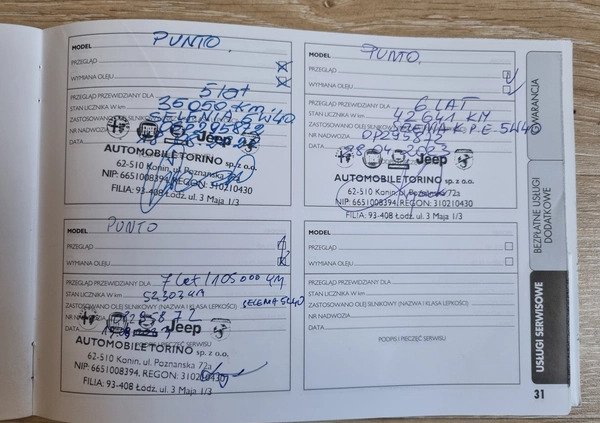 MODEL PUNTO.
PRZEGLĄD
WYMIANA OLEJU
PRZEGLĄD PRZEWIDZIANY DLA 5 lat
STAN LICZNIKA W km 35050 km
ZASTOSOWANO OLEJ SILNIKOWY SELENIA 5W40
NR NADWOZIA
DATA
Jeep
AUTOMOBILETORINO sp. z o.o.
62-510 Konin, ul. Poznańska 72a
NIP: 6651008394, REGON: 310210430
FILIA: 93-408 Łódź, ul. 3 Maja 1/3
MODEL PUNTO.
PRZEGLĄD
WYMIANA OLEJU
PRZEGLĄD PRZEWIDZIANY DLA 6 LAT
STAN LICZNIKA W km 42641 KM
ZASTOSOWANO OLEJ SILNIKOWY SELENIA K P.E. 5W40
NR NADWOZIA
DATA
Jeep
AUTOMOBILETORINO sp. z o.o.
62-510 Konin, ul. Poznańska 72a
NIP: 6651008394, REGON: 310210430
FILIA: 93-408 Łódź, ul. 3 Maja 1/3
MODEL PUNTO
PRZEGLĄD
WYMIANA OLEJU
PRZEGLĄD PRZEWIDZIANY DLA 7 lat/105000 KM
STAN LICZNIKA W km 52303 KM
ZASTOSOWANO OLEJ SILNIKOWY (NAZWA I KLASA LEPKOŚCI) SELENIA 5W40
NR NADWOZIA
DATA
Jeep
PODPIS I PIECZĘĆ SERWISU
AUTOMOBILETORINO sp. z o.o.
62-510 Konin, ul. Poznańska 72a
NIP: 6651008394, REGON: 310210430
FILIA: 93-408 Łódź, ul. 3 Maja 1/3
MODEL
PRZEGLĄD
WYMIANA OLEJU
PRZEGLĄD PRZEWIDZIANY DLA
STAN LICZNIKA W km
ZASTOSOWANO OLEJ SILNIKOWY (NAZWA I KLASA LEPKOŚCI)
NR NADWOZIA
DATA
PODPIS I PIECZĘĆ SERWISU
GWARANCJA
BEZPŁATNE USŁUGI
DODATKOWE
USŁUGI SERWISOWE
31